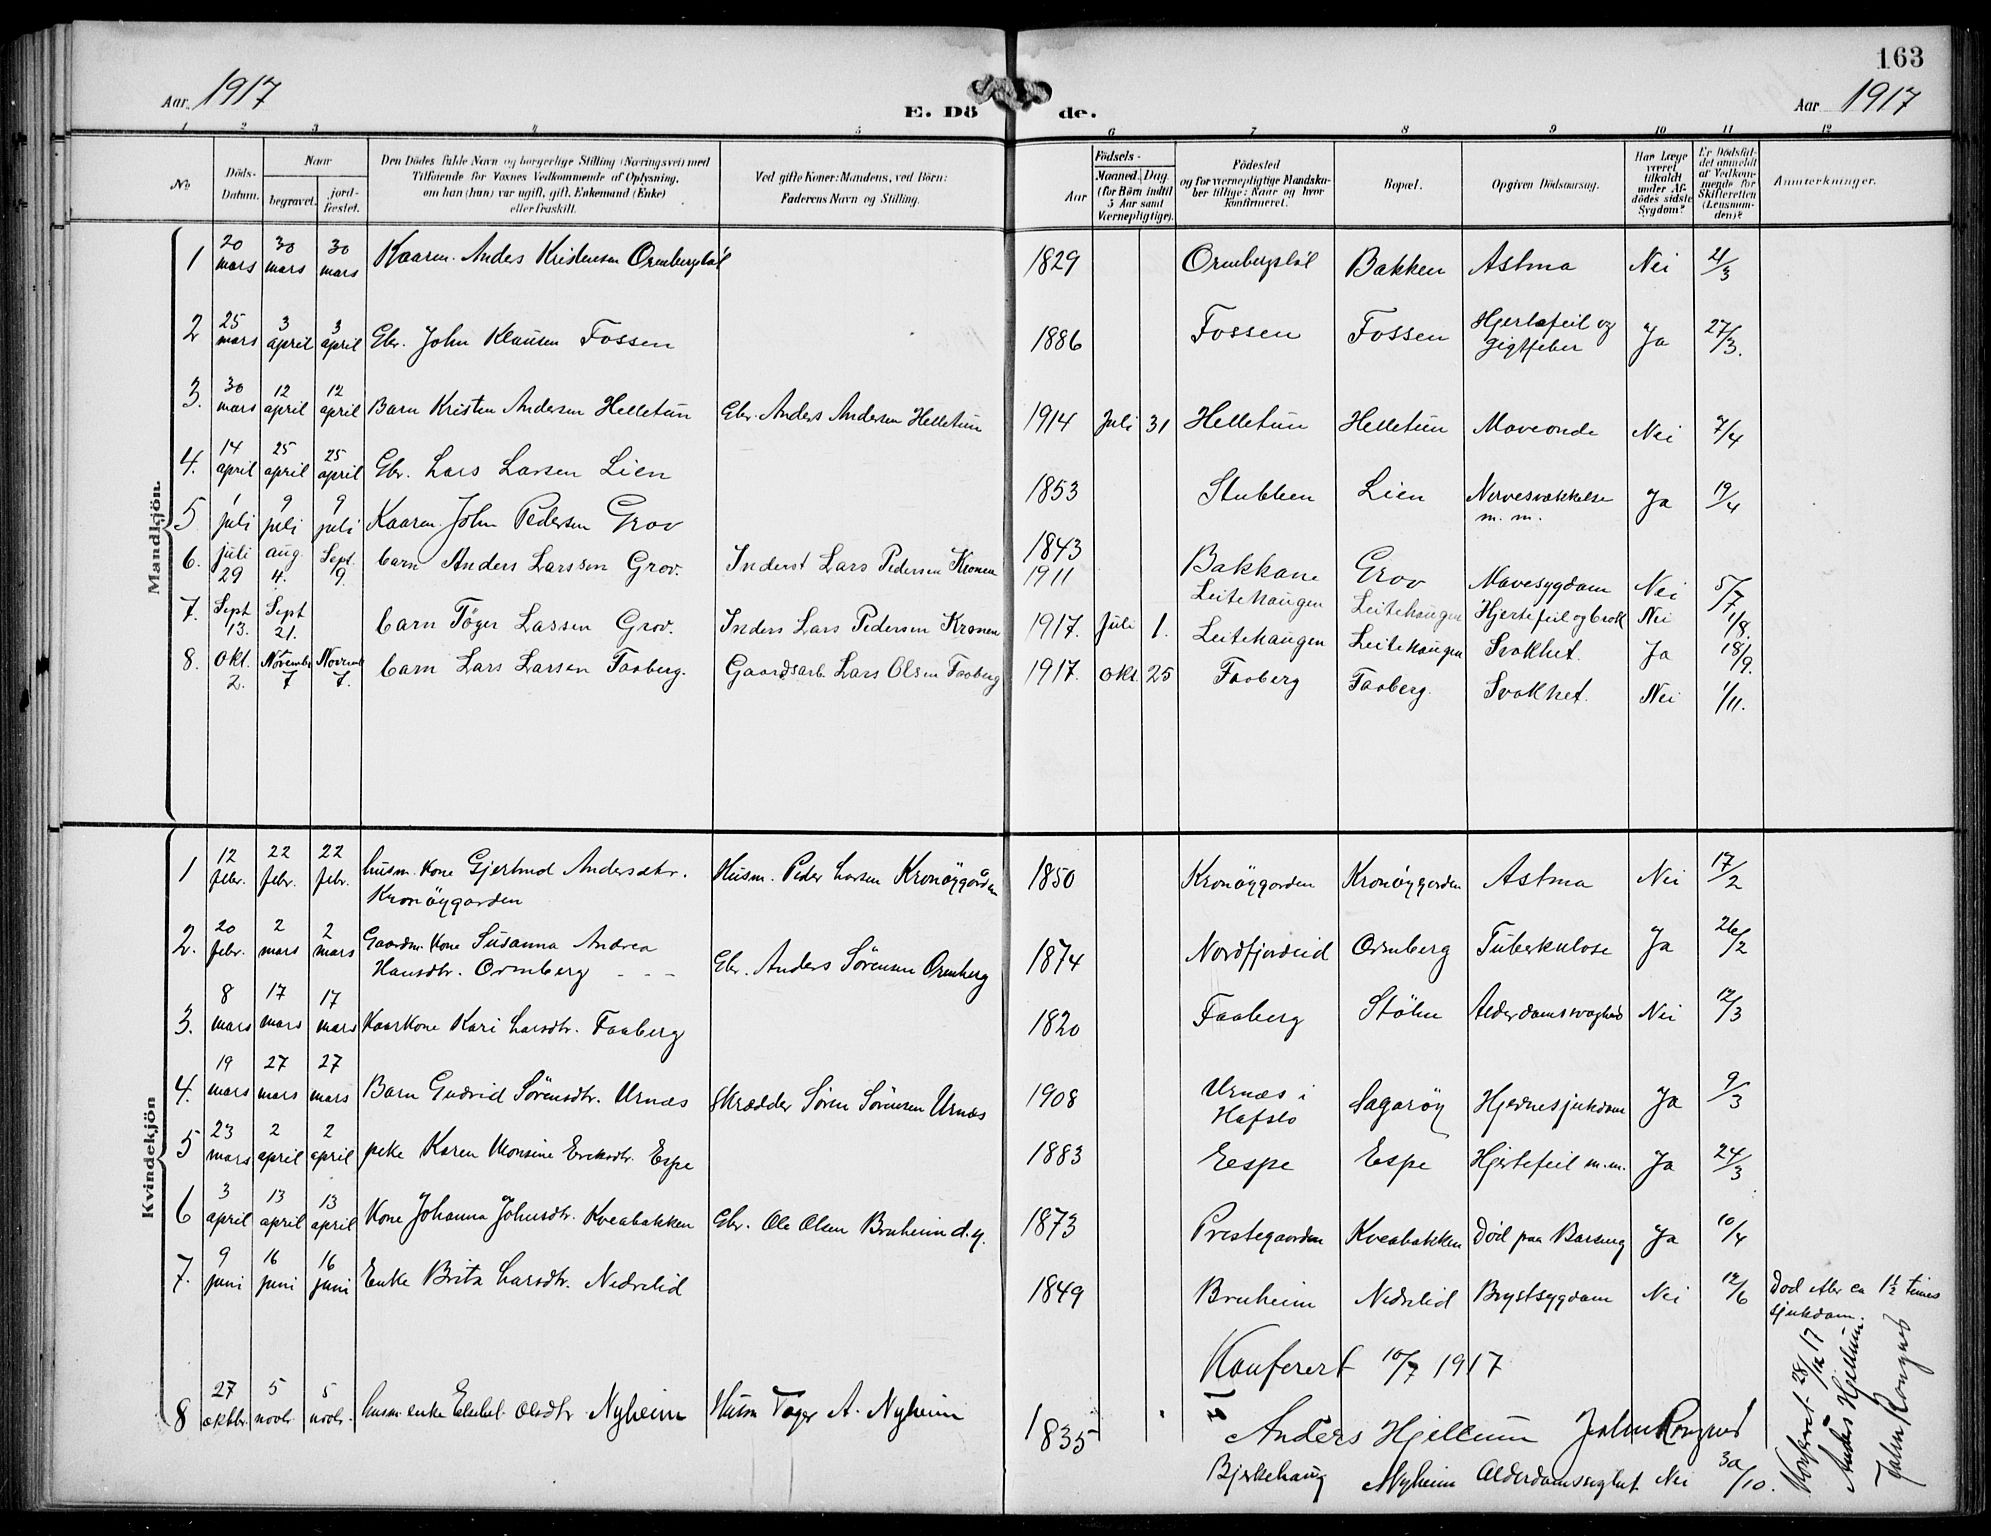 163
Aar 1917
E. Dö de.
Aar 1917
1 2 3 4 5 6 7 8 9 10 11 12
No
Döds-Datum.
Naar
begravet.
jord-fæstet.
Den Dödes fulde Navn og borgerlige Stilling (Næringsvei) med
Tilföiende for Voxnes Vedkommende af Oplysning,
om han (hun) var ugift, gift, Enkemand (Enke)
eller fraskilt.
Ved gifte Koner: Mandens, ved Börn:
Faderens Navn og Stilling.
Födsels-
Aar
Maaned. Dag.
(for Börn indtil
5 Aar samt
Værnepligtige).
Födested
og for værnepligtige Mandska-
ber tillige: Naar og hvor
konfirmeret.
Bopæl.
Opgiven Dödsaarsag.
Har Læge
været
tilkaldt
under Af-
dödes sidste
Sygdom?
Er Dödsfal-
det anmeldt
af Vedkom-
mende for
Skifteretten
(Lensman-
den)?
Anmærkninger.
Mandkjön.
1 20 mars 30 mars 30 mars Kaarm. Anders Kristensen Ormbergstøl 1829 Ormbergstøl Bakken Astma Nei 21/3
2 25 mars 3 april 3 april Gbr. John Klausen Fossen 1886 Fossen Fossen Hjertefeil og gigtfeber Ja 27/3.
3. 30 mars 12 april 12 april Barn Kristen Andersen Helletun Gbr. Anders Andersen Helletun 1914 Juli 31 Helletun Helletun Maveonde Nei 7/4
4. 14 april 25 april 25 april Gbr. Lars Larsen Lien 1853 Stubben Lien Nervesvækkelse m. m. Ja 19/4
5 1 juli 9 juli 9 juli Kaarm. John Pedersen Grov 1843 Bakkane Grov Mavesygdom Nei 5/7
6. juli 29 aug. 4. Sept. 9. barn Anders Larssen Grov. Inderst Lars Pedersen Kronen 1911 Leitehaugen Leitehaugen Hjertefeil og brok Nei 1/8.
7. Sept 13. Sept 21. barn Töger Lassen Grov. Inders Lars Pedersen Kronen 1917. Juli 1. Leitehaugen Leitehaugen Svakhet. Ja 18/9.
8. Okt. 2. November 7 Novemb 7. barn Lars Larsen Faaberg. Gaardsarb. Lars Olsen Faaberg 1917. okt. 25 Faaberg Faaberg. Svakhet. Nei 1/11.
Kvindekjön
1 12 febr. 22 febr. 22 febr. husm. kone Gjertrud Andersdtr. Kronöygarden Husm. Peder Larsen Kronöygarden 1850 Kronöygorden Kronöygorden Astma Nei 17/2
2. 20 febr. 2 mars 2 mars Gaardm. kone Susanna Andrea Hansdtr. Ormberg - - - Gbr. Anders Sörensen Ormberg 1874 Nordfjordeid Ormberg Tuberkulose Ja 26/2
3. 8 mars 17 mars 17 mars Kaarkone Kari Larsdtr. Faaberg 1820 Faaberg Stöhn Alderdomssvaghed Nei 12/3
4. 19 mars 27 mars 27 mars Barn Gudrid Sörensdtr. Urnæs Skrædder Sören Sörensen Urnæs 1908 Urnæs i Hafslo Sagaröy Hjernesjukdom Ja 9/3
5 23 mars 2 april 2 april pike Karen Monsine Eriksdtr. Espe 1883 Eespe Espe Hjertefeil m.m. Ja 24/3
6 3 april 13 april 13 april Kone Johanna Johnsdtr. Kveabakken Gbr. Ole Olsen Bruheim d.y. 1873 Prestegaarden Kveabakken Död paa Barseng Ja 10/4
7. 9 juni 16 juni 16 juni Enke Brita Larsdtr. Nedrelid 1849 Bruheim Nedrelid Brystsygdom Nei 12/6 Död efter ca 1½ times sjukdom.
Konferert 10/7 1917
Anders Hjellum John Kongsnes
8 27 oktbr. 5 novbr. 5 novbr. husm. enke Elsebet Olsdtr Nyheim Husm Töger A. Nyheim 1835 Bjerkehaug Nyheim Alderdomssvaghet Nei 30/10.
Konferert 28/12 17
Anders Hjellum.
John Kongsnes